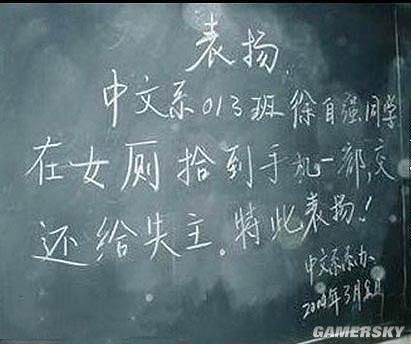 表扬
中文系013班徐自强同学
在女厕拾到手机一部,交
还给失主。特此表扬!
中文系系办
GAMERSKY